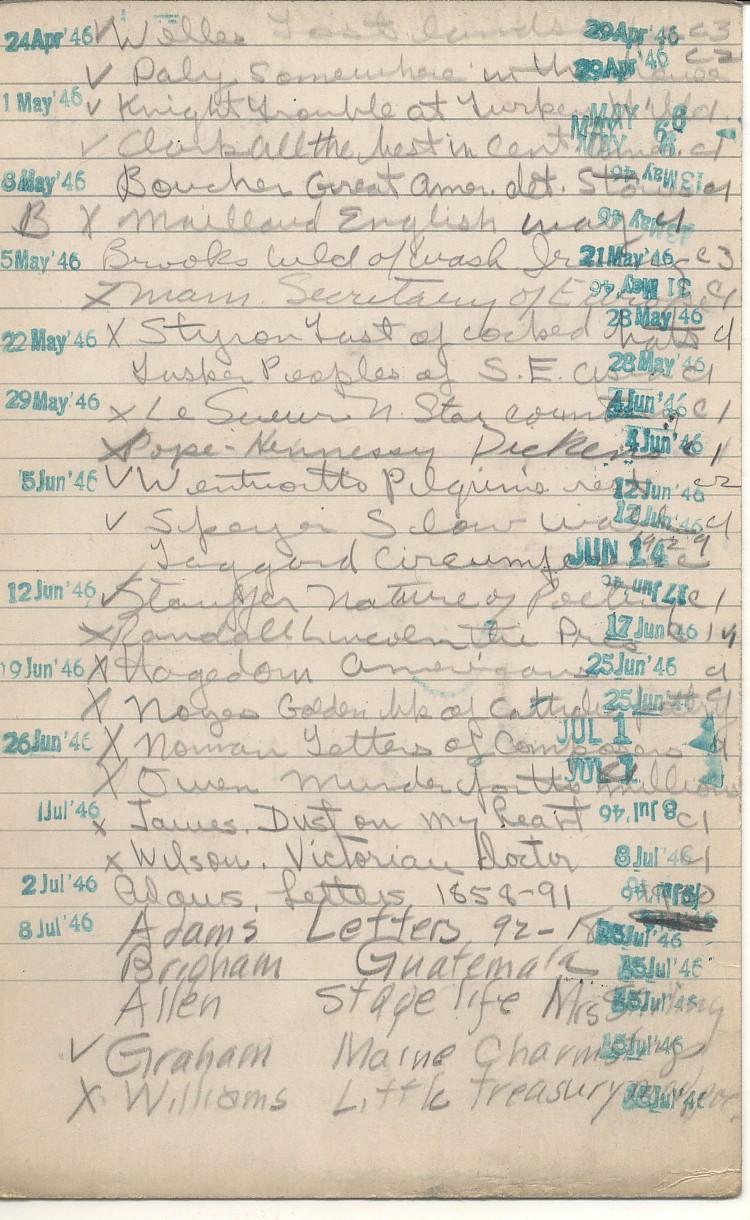 24 Apr '46 ✓ Welles Lost lands 29 Apr '46 c3
✓ Paly. Somewhere in the house 29 Apr '46 c2
1 May '46 ✓ Knight Trouble at Turkey Hill MAY 6
✓ Clark All the best in Cent MAY c1
8 May '46 Boucher Great Amer. det. Stories 13 May '46 c1
B X Mailland English way 13 May '46 c1
5 May '46 Brooks World of Wash Ir 21 May '46 c3
X Mann. Secretary of Europe 31 May '46 c1
22 May '46 X Styron Last of cocked hats 28 May '46 c1
Lasker Peoples of S.E. Asia 28 May '46 c1
29 May '46 X Le Sueur N Star country 4 Jun '46 c1
X Pope-Hennessy Dickens 4 Jun '46 c1
5 Jun '46 ✓ Wentworth Pilgrim's rest 12 Jun '46 c2
✓ Speyer Slow wall 12 Jun '46 c1
Taggard Circumference JUN 14
12 Jun '46 ✓ Stauffer Nature of Poetry 17 Jun '46 c1
X Randall Lincoln the Pres 17 Jun '46
19 Jun '46 X Hagedorn Americans 25 Jun '46 c1
X Noyes Golden bk of Catholic poetry 25 Jun '46 c1
26 Jun '46 X Norman Letters of Composers JUL 1 c1
X Owen Murder for the millions JUL 1
1 Jul '46 X James. Dust on my heart 8 Jul '46 c1
X Wilson. Victorian Doctor 8 Jul '46 c1
2 Jul '46 Adams. Letters 1858-91
8 Jul '46 Adams Letters 92- Jul '46
Brigham Guatemala 15 Jul '46
Allen Stage life Mrs 15 Jul '46
✓ Graham Maine Charm 15 Jul '46
X Williams Little treasury 15 Jul '46